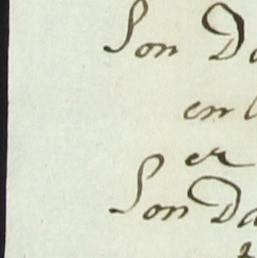 Son Da
en
er
Son Da